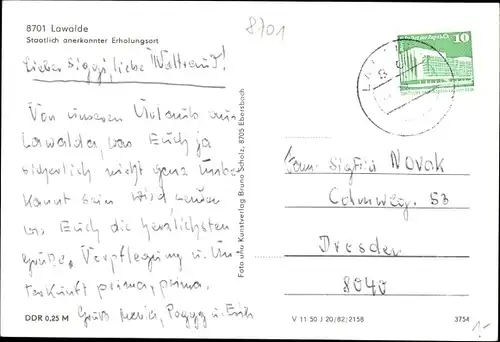 8701
8701 Lawalde
Staatlich anerkannter Erholungsort
Lieber Siggi, liebe Waltraud!
Von unserem Urlaub aus
Lawalde, was Euch ja
sicherlich nicht ganz unbe
kannt sein wird senden
wir Euch die herzlichsten
Grüße, Verpflegung u. Un-
terkunft prima, prima.
Gruß Peggy u. Erich
DDR 0,25 M
Foto und Kunstverlag Bruno Scholz, 8705 Ebersbach
10
Fam. Sigfrid Novak
53
Dresden
8040
V 11 50 J 20/82/2158
3754
1,-